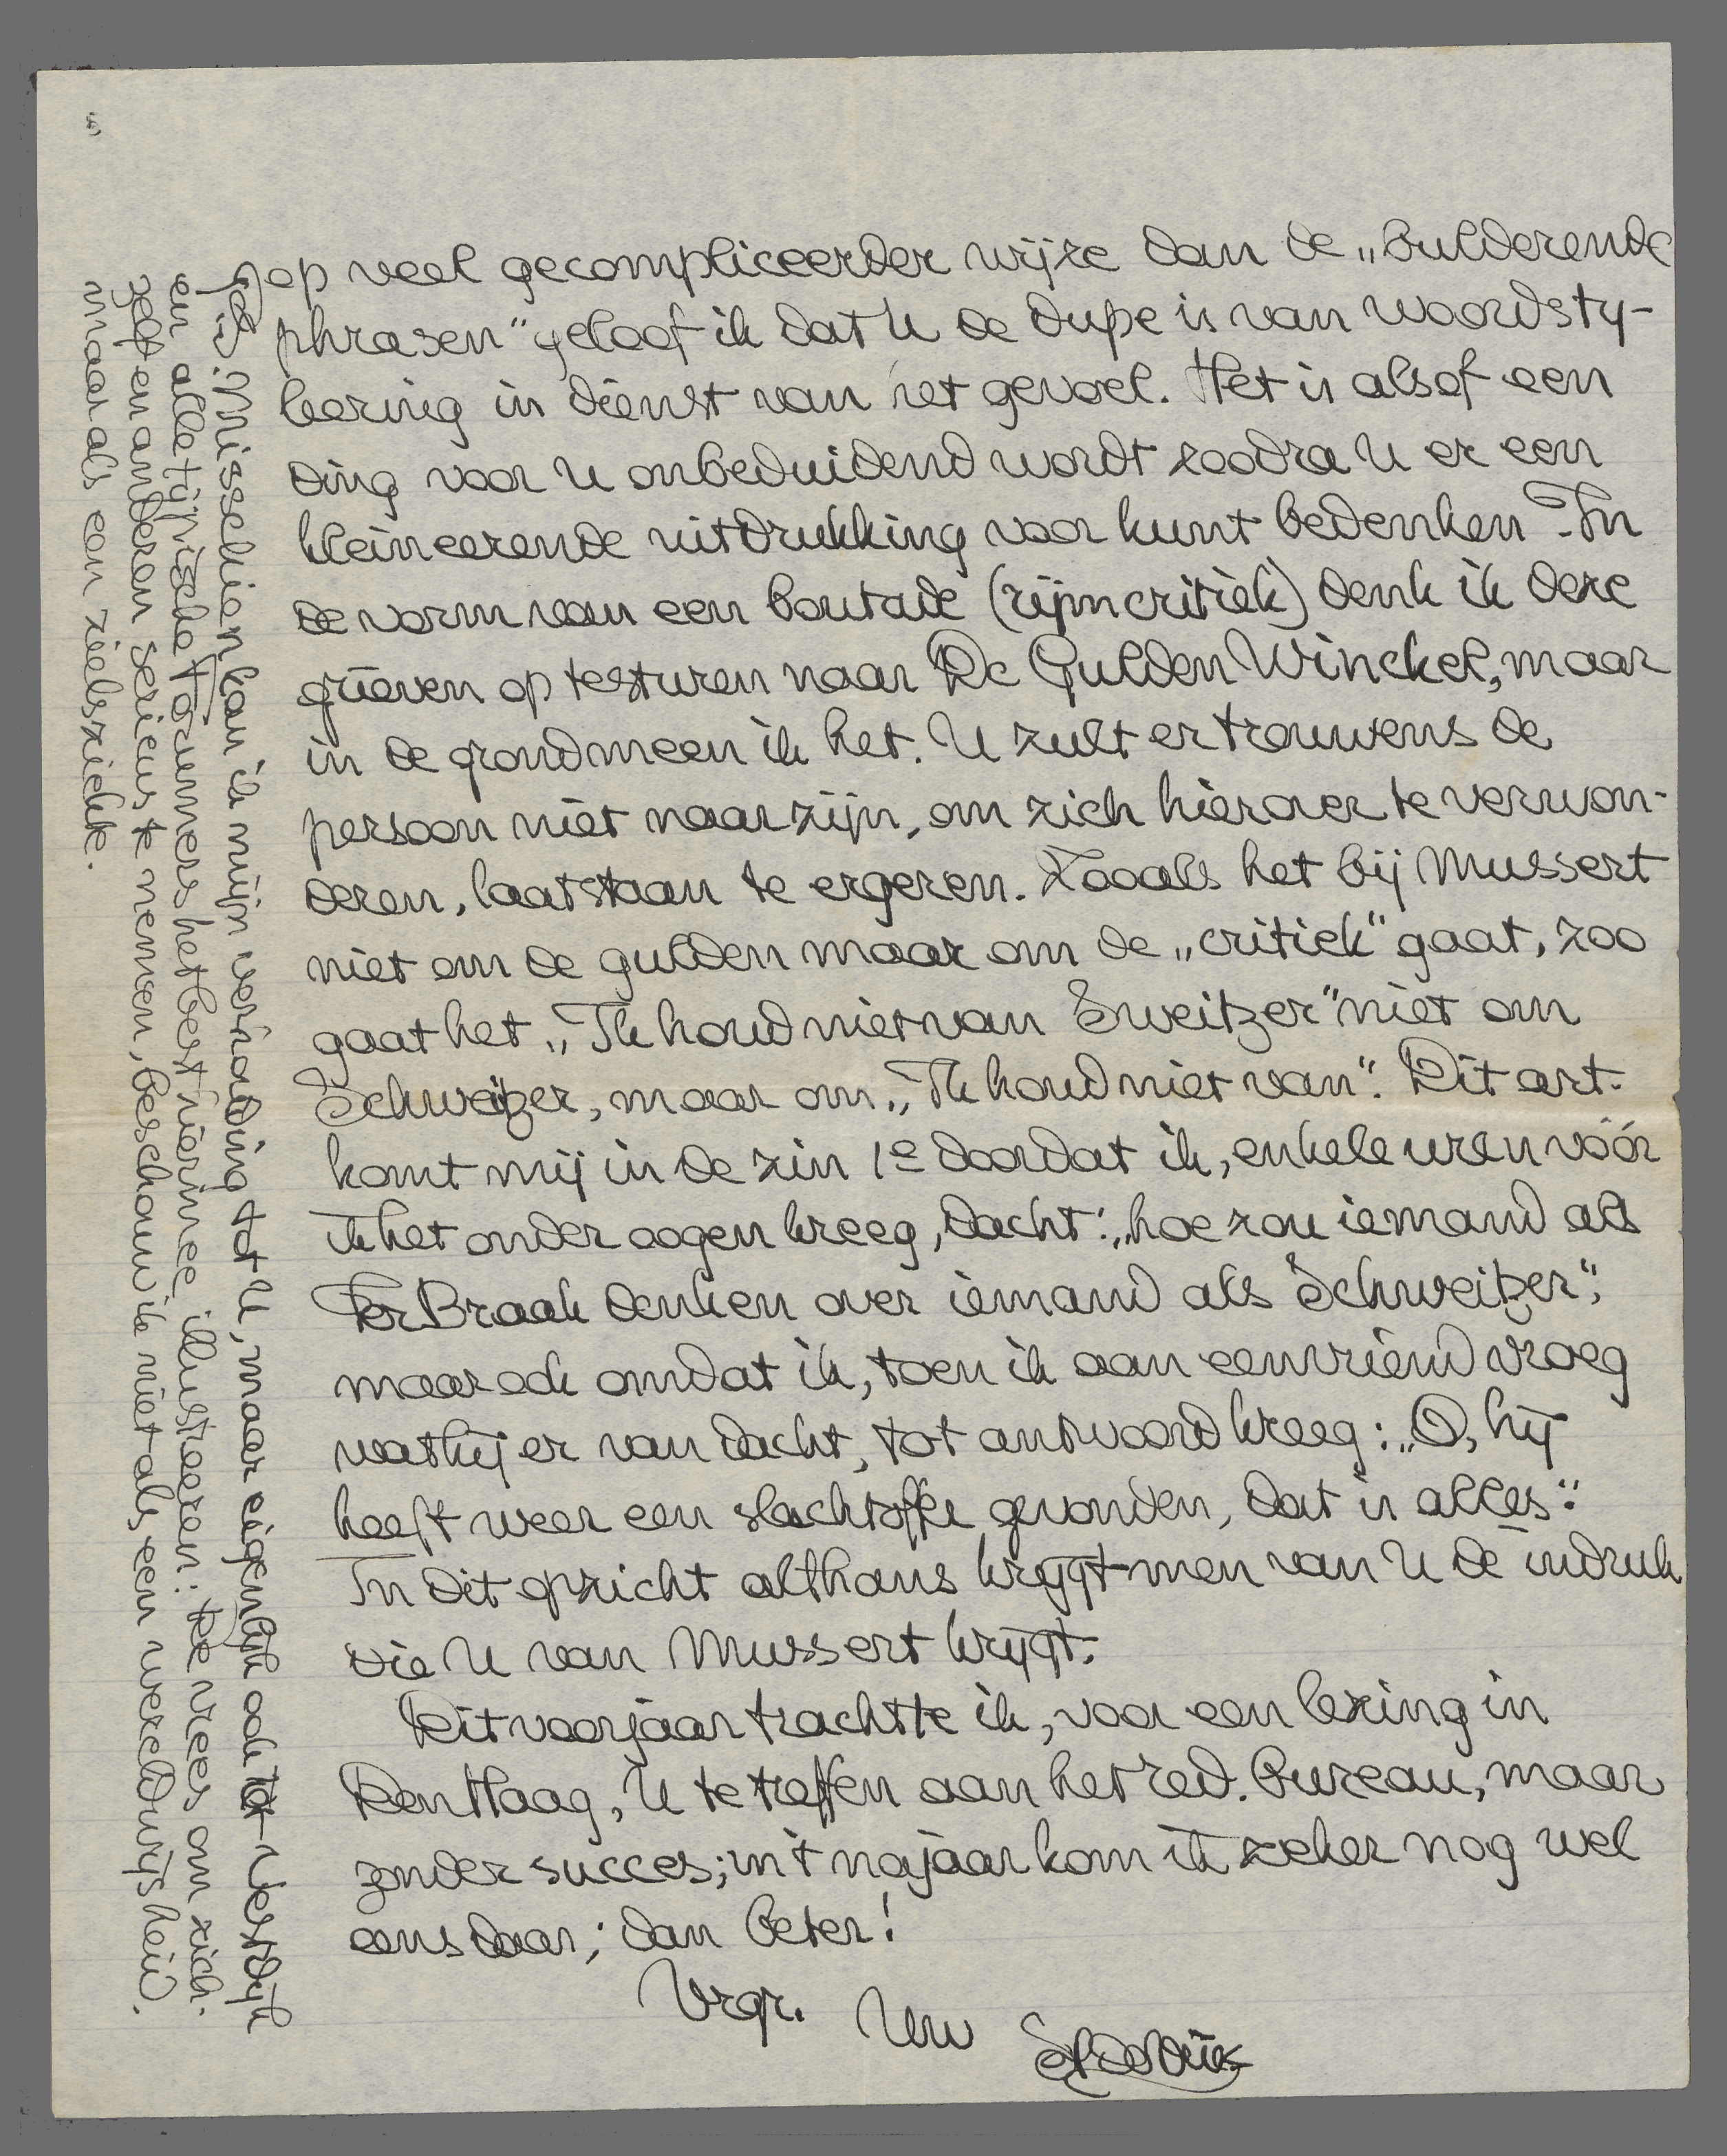 op veel gecompliceerder wijze dan de „bulderende
phrasen" geloof ik dat U de dupe is van woordsty-
leering in dienst van het gevoel. Het is alsof een
ding voor U onbeduidend wordt zoodra U er een
kleineerende uitdrukking voor kunt bedenken. In
de vorm van een boutade (rijmcritiek) denk ik deze
grieven op te sturen naar De Gulden Winckel, maar
in de grond meen ik het. U zult er trouwens de
persoon niet naar zijn, om zich hierover te verwon-
deren, laat staan te ergeren. Zooals het bij Mussert
niet om de gulden maar om de „critiek" gaat, zoo
gaat het „Ik houd niet van Sweitzer" niet om
Schweitzer, maar om „Ik houd niet van". Dit art.
komt mij in de zin 1e doordat ik, enkele uren vóór
ik het onder oogen kreeg, dacht: „hoe zou iemand als
Ter Braak denken over iemand als Schweitzer";
maar ook omdat ik, toen ik aan een vriend vroeg
wat hij er van dacht, tot antwoord kreeg: „O, hij
heeft weer een slachtoffer gevonden, dat is alles".
In dit opzicht althans krijgt men van U de indruk
die U van Mussert krijgt.
Dit voorjaar trachtte ik, voor een lezing in
Den Haag, U te treffen aan het red. bureau, maar
zonder succes; in 't najaar kom ik zeker nog wel
eens daar; dan beter!
Vrgr. Uw
S. de Vries
Misschien kan ik mijn verhouding tot U, maar eigenlijk ook tot Vestdijk
en alle typische Forummers het best hiermee illustreeren: de vrees om zich-
zelf en anderen serieus te nemen, beschouw ik niet als een wereldwijsheid,
maar als een zielsziekte.